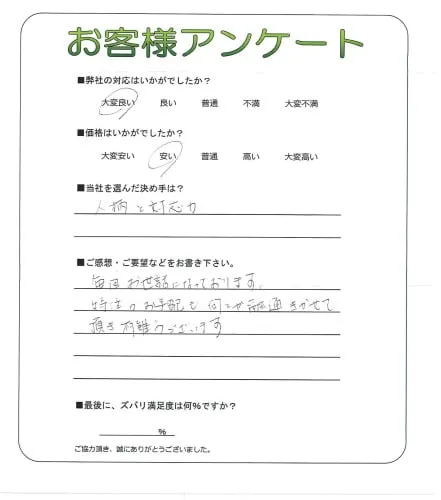 お客様アンケート
■弊社の対応はいかがでしたか？
大変良い 良い 普通 不満 大変不満
■価格はいかがでしたか？
大変安い 安い 普通 高い 大変高い
■当社を選んだ決め手は？
人柄と対応力
■ご感想・ご要望などをお書き下さい。
毎回お世話になっております。
特注のお手配も何とか融通きかせて
頂き有難うございます
■最後に、ズバリ満足度は何%ですか？
%
ご協力頂き、誠にありがとうございました。